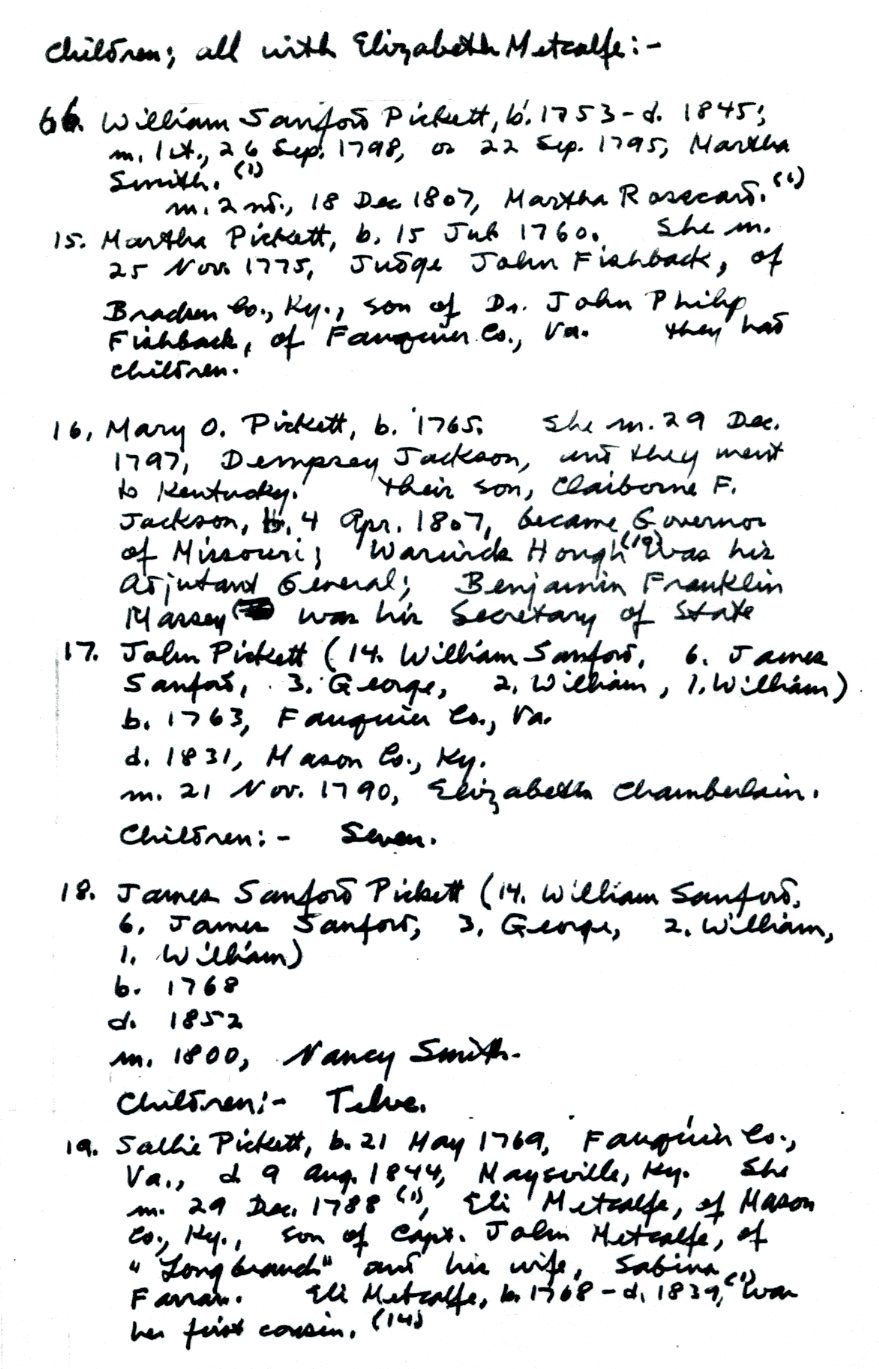 Children; all with Elizabeth Metcalfe:-
66. William Sanford Pickett, b. 1753 - d. 1845;
m. 1st., 26 Sep. 1798, or 22 Sep. 1795, Martha
Smith. (1)
m. 2nd., 18 Dec 1807, Martha Rosecard. (1)
15. Martha Pickett, b. 15 Jul 1760. She m.
25 Nov. 1775, Judge John Fishback, of
Bracken Co., Ky., son of Dr. John Philip
Fishback, of Fauquier Co., Va. They had
children.
16. Mary O. Pickett, b. 1765. She m. 29 Dec.
1797, Dempsey Jackson, and they went
to Kentucky. Their son, Claiborne F.
Jackson, b. 4 Apr. 1807, became Governor
of Missouri; Warwick Hough (19) was his
Adjutant General; Benjamin Franklin
Massey was his Secretary of State
17. John Pickett (14. William Sanford, 6. James
Sanford, 3. George, 2. William, 1. William)
b. 1763, Fauquier Co., Va.
d. 1831, Mason Co., Ky.
m. 21 Nov. 1790, Elizabeth Chamberlain.
Children:- Seven.
18. James Sanford Pickett (14. William Sanford,
6. James Sanford, 3. George, 2. William,
1. William)
b. 1768
d. 1852
m. 1800, Nancy Smith.
Children:- Telve.
19. Sallie Pickett, b. 21 May 1769, Fauquier Co.,
Va., d 9 Aug. 1844, Maysville, Ky. She
m. 29 Dec. 1788 (1), Eli Metcalfe, of Mason
Co., Ky., son of Capt. John Metcalfe, of
"Longbranch" and his wife, Sabina
Farran. Eli Metcalfe, b. 1768 - d. 1839, (1) was
her first cousin. (14)